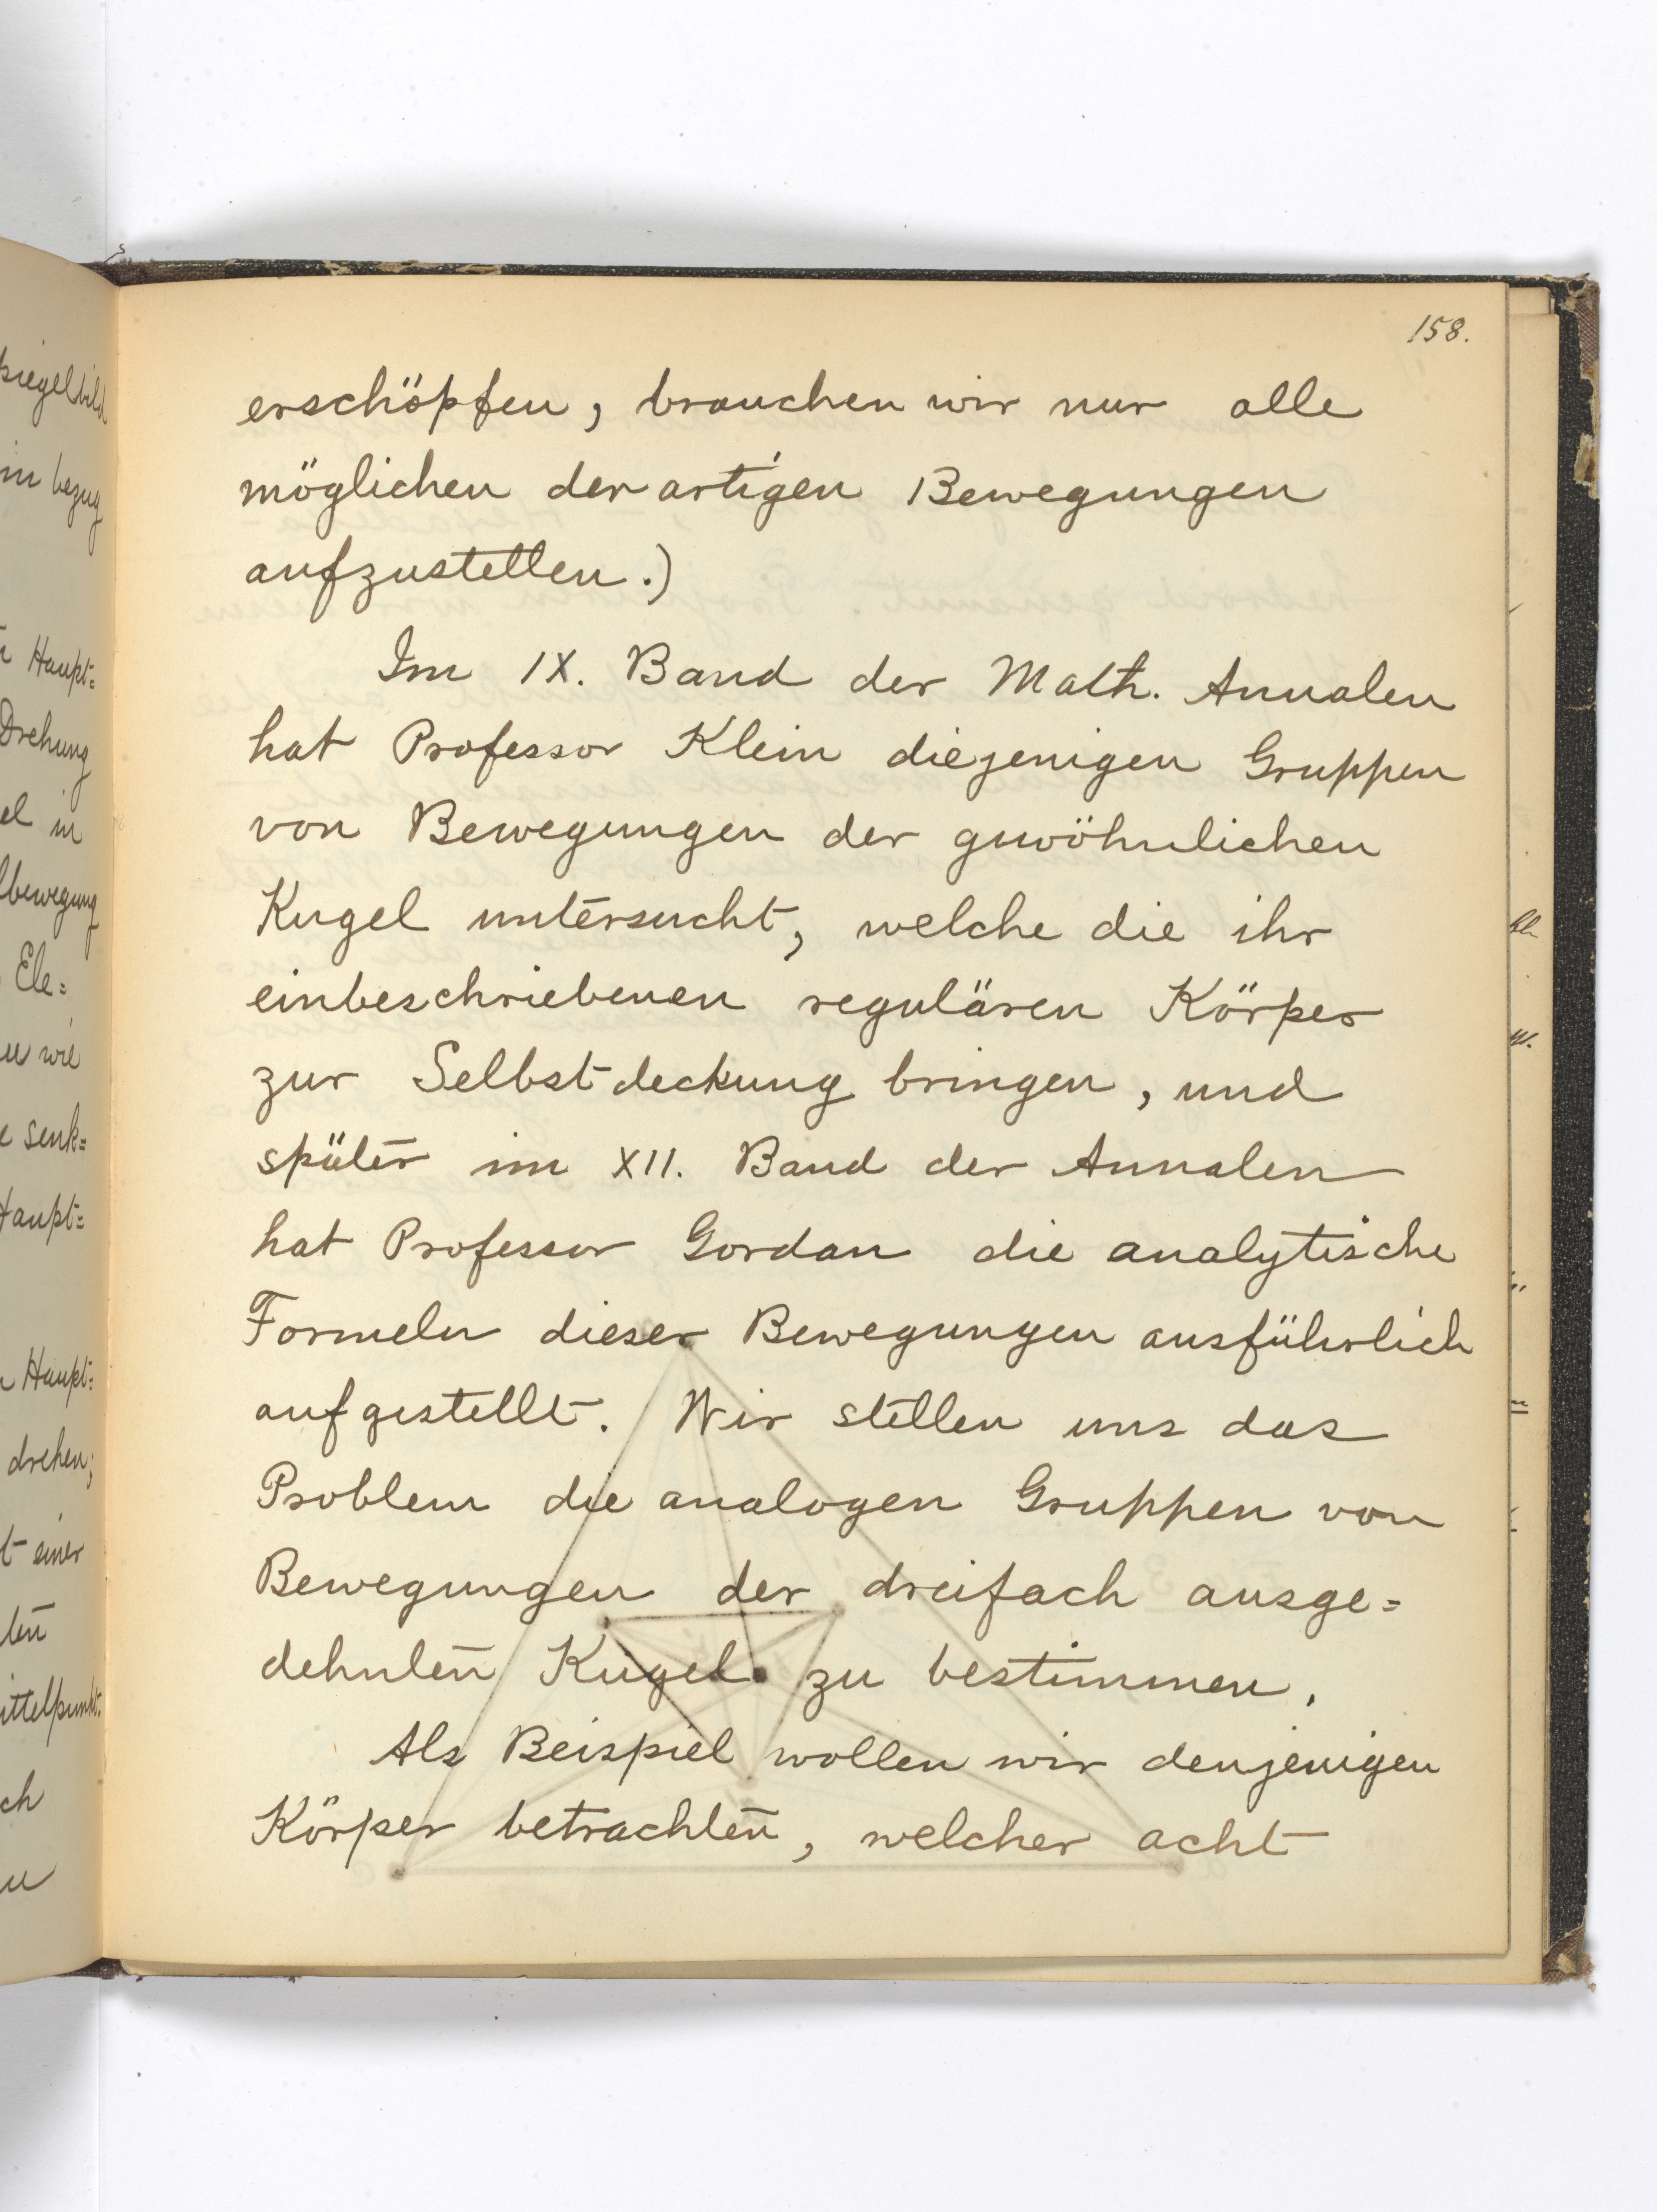 158.
erschöpfen, brauchen wir nur alle
möglichen derartigen Bewegungen
aufzustellen.)
Im IX. Band der Math. Annalen
hat Professor Klein diejenigen Gruppen
von Bewegungen der gewöhnlichen
Kugel untersucht, welche die ihr
einbeschriebenen regulären Körper
zur Selbstdeckung bringen, und
später im XII. Band der Annalen
hat Professor Gordan die analytische
Formeln dieser Bewegungen ausführlich
aufgestellt. Wir stellen uns das
Problem die analogen Gruppen von
Bewegungen der dreifach ausge=
dehnten Kugel zu bestimmen.
Als Beispiel wollen wir denjenigen
Körper betrachten, welcher acht
in bezug
Haupt=
Drehung
in
Ele=
wie
senk=
Haupt=
Haupt=
drehen;
einer